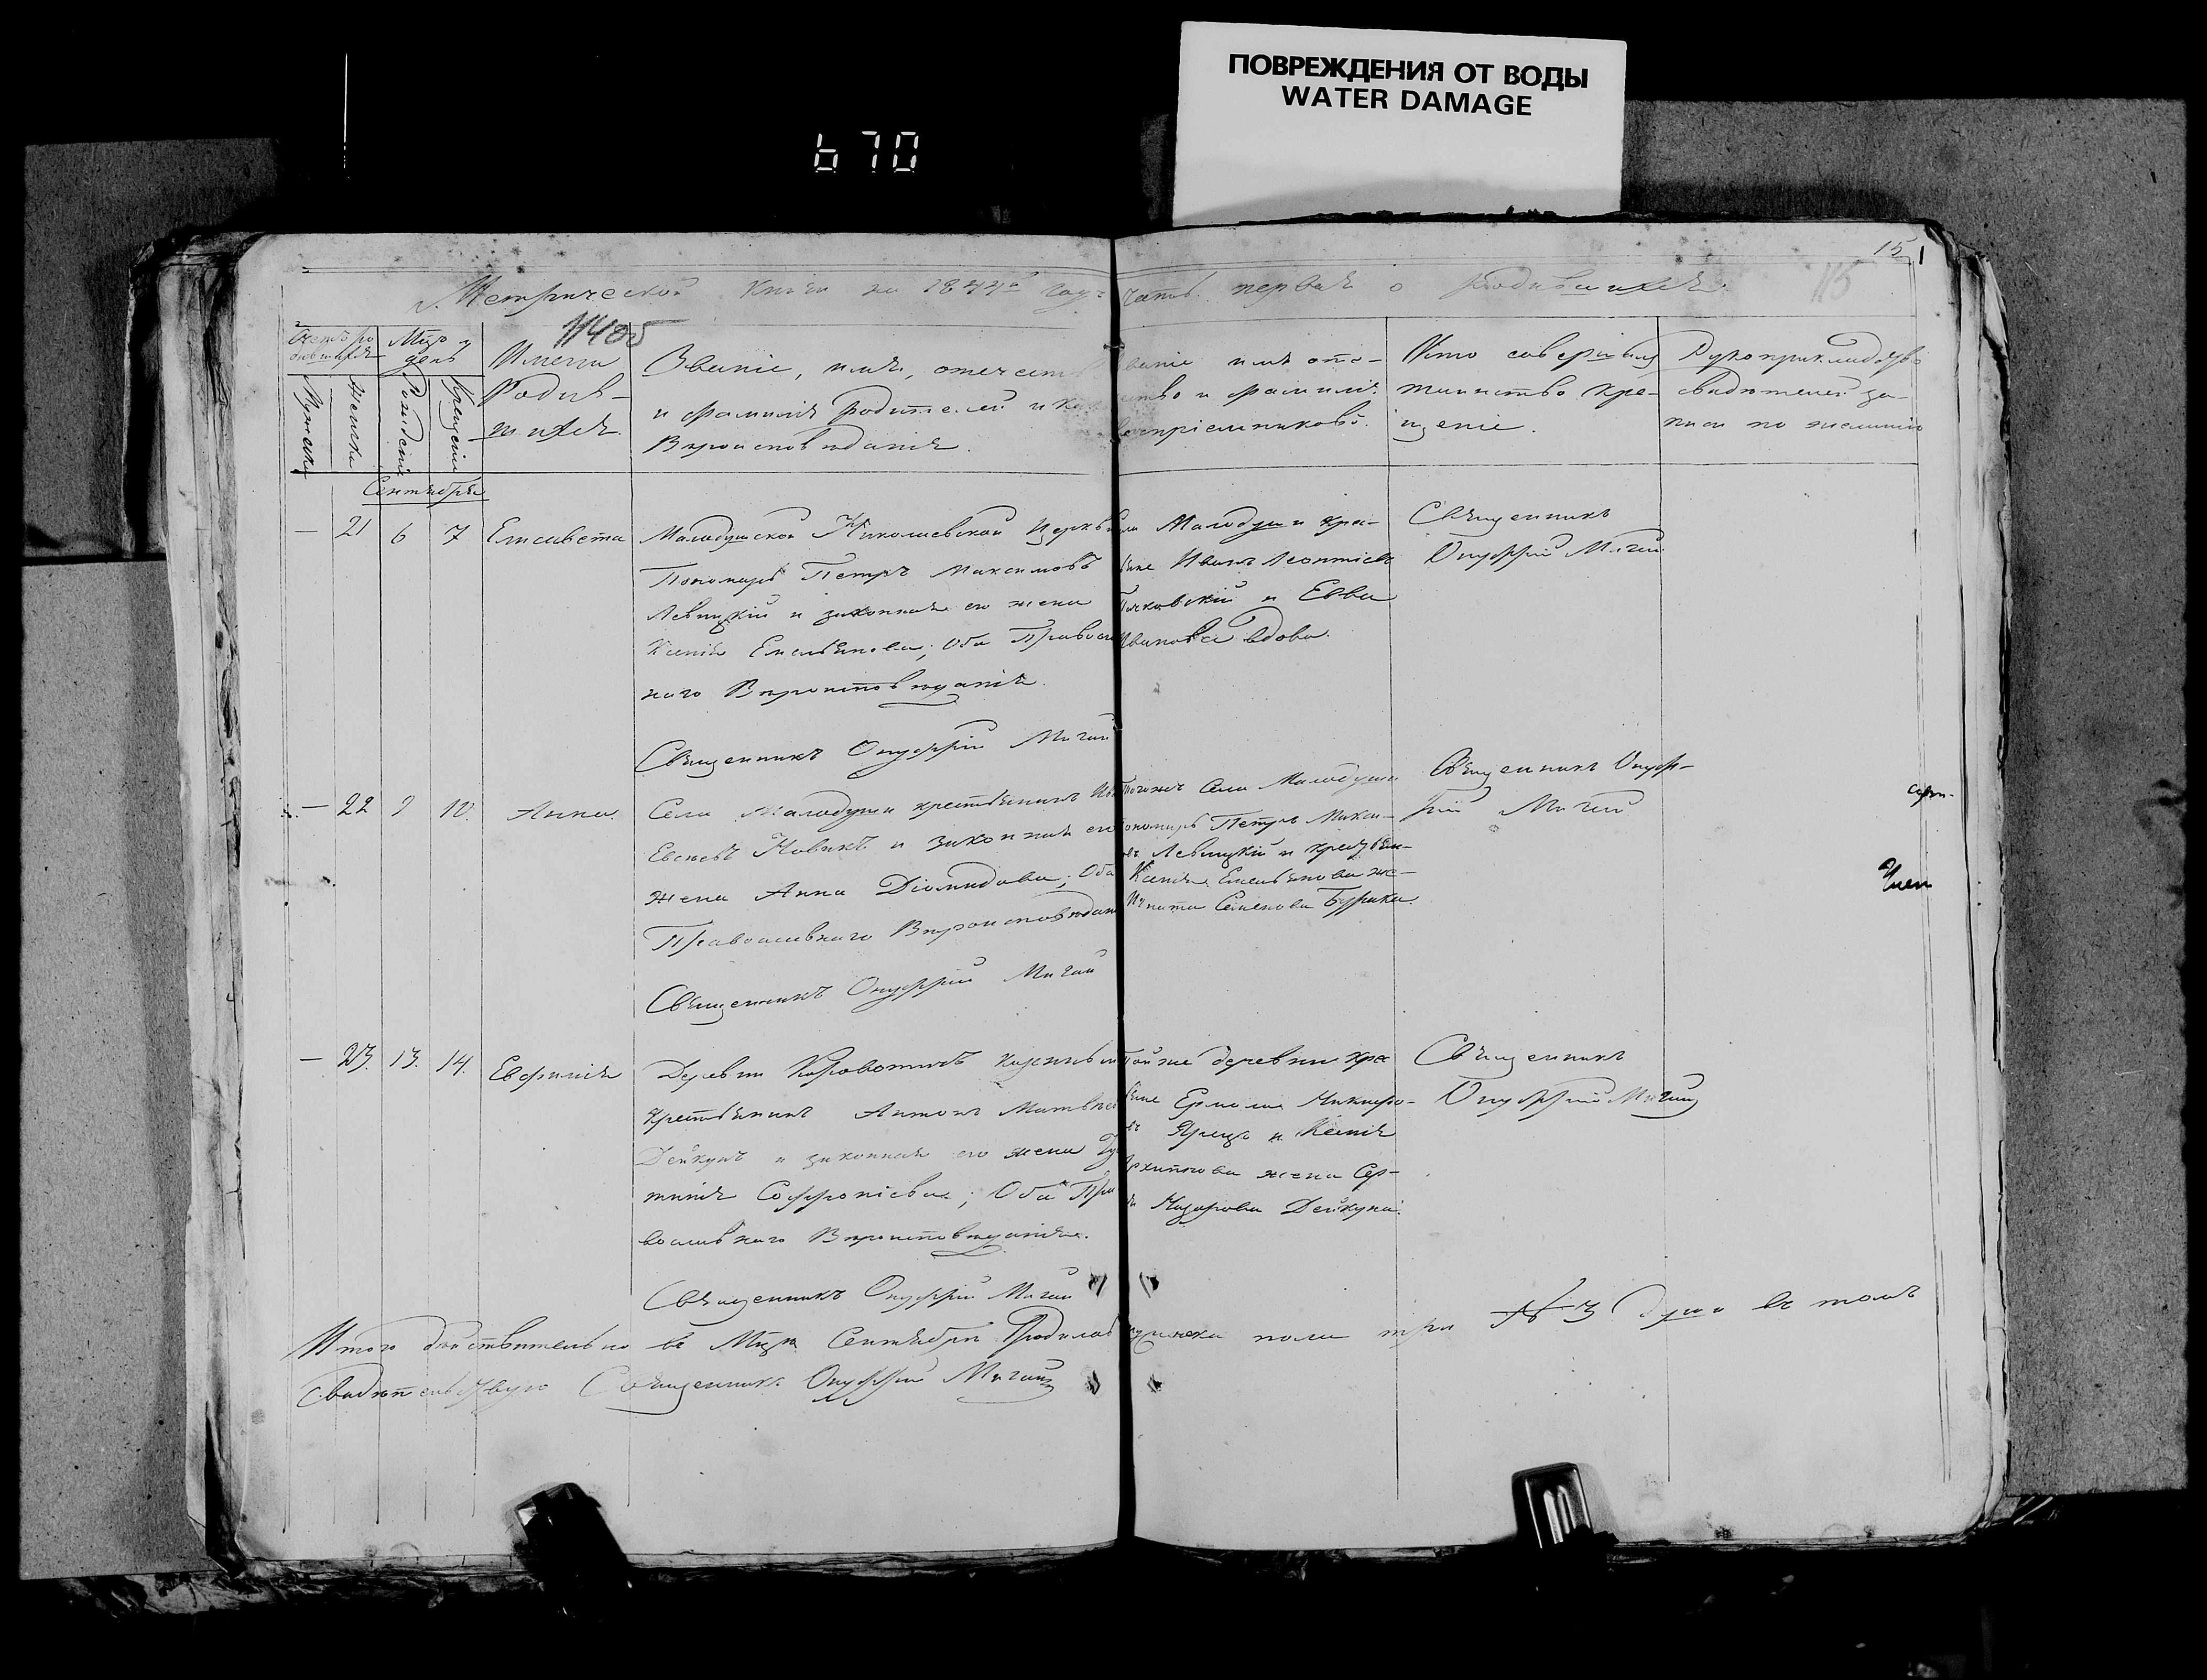 ПОВРЕЖДЕНИЯ ОТ ВОДЫ
WATER DAMAGE
670
15
115
Метрической Книги на 1844й годъ часть первая о родившихся
11405
Мѣсяцъ и день
Имена Родив-
шихся.
Мужеска
Женска
Рожденія
Крещенія
Званіе, имя, отечество
и фамилія Родителей и какого
Вѣроисповѣданія.
Званіе имя оте-
ство и фамилія
воспріемниковъ.
Кто совершилъ
таинство кре-
щеніе.
Рукоприкладство
свидѣтелей за-
писи по желанію
Сентября
— 21 6 7 Елисавета
Малодушской Николаевской Церкви
Пономарь Петръ Максимовъ
Левицкій и законная его жена
Ксенія Емельянова; Оба Православ
наго Вѣроисповѣданія.
Священникъ Онуфрій Мигай
Малодуши кре-
Иванъ Леонтіевъ
и Евва
Иванова вдова.
Священникъ
Онуфрій Мигай
— 22 9 10. Анна.
Села Малодуши крестьянинъ
Евсѣевъ Новикъ и законная его
жена Анна Діомидова; Оба
Православнаго Вѣроисповѣдан
Священникъ Онуфрій Мигай
села Малодуши
Пономарь Петръ Макси-
овъ Левицкій и крестьян-
Ксенія Емельянова же-
Игната Семенова Бурика.
Священникъ Онуф-
рій Мигай
— 23. 13. 14. Евфимія
Деревни
крестьянинъ Антонъ Матвѣев
Дейкунъ и законная его жена
Софроніева; Оба Пра
вославнаго Вѣроисповѣданія.
Священникъ Онуфрій Мигай
Той же деревни кре
Ермолай Никифо-
Ярецъ и Ксенія
Архипова жена Сер-
Назарова Дейкуна.
Священникъ
Онуфрій Мигай
Итого дѣйствительно въ Мцѣ Сентябрѣ Родилось женска пола три № 3 души въ томъ
Свидѣтельствую Священникъ Онуфрій Мигай